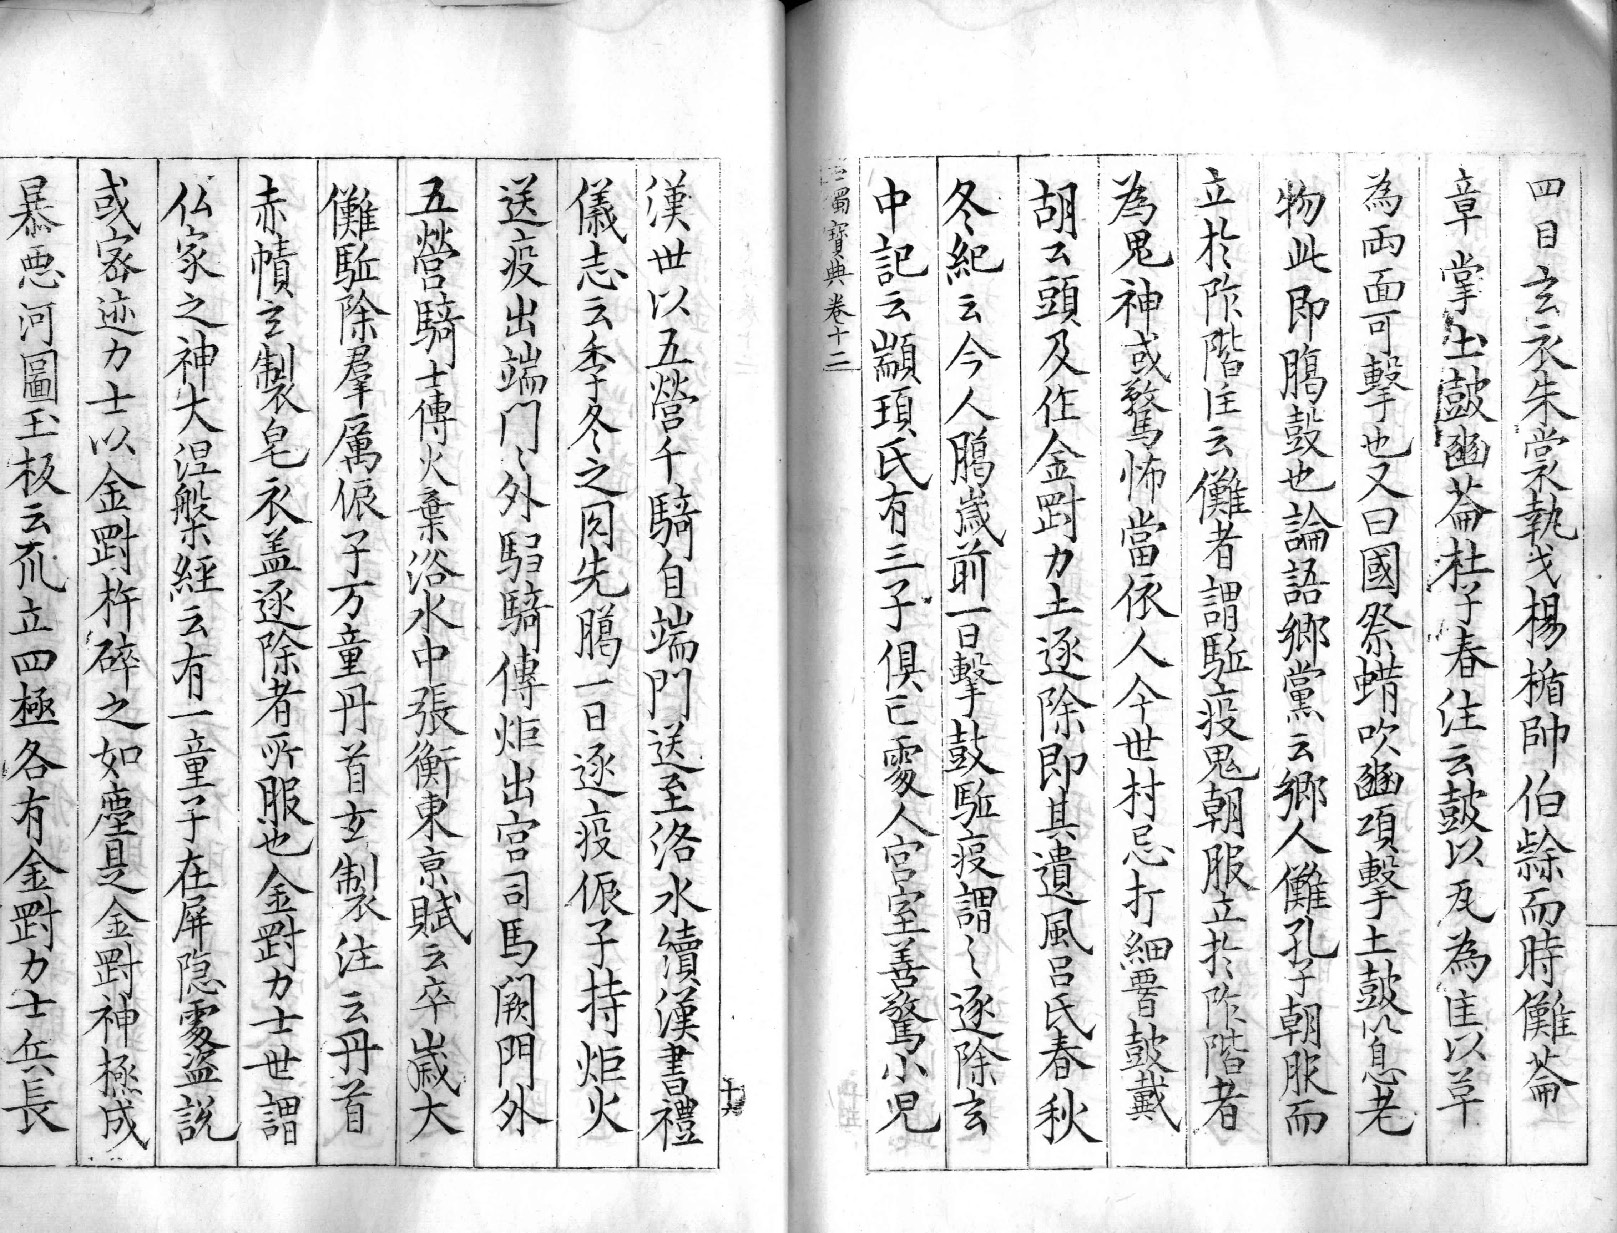 四目玄衣朱裳執戈楊楯帥伯㱙而時儺蘥
章掌土鼓豳蘥杜子春注云鼓以瓦為𦤺以草
為兩面可擊也又曰國祭蜡吹豳頌擊土鼓以息老
物此即臈鼓也論語鄉黨云鄉人儺孔子朝服而
立於阼階注云儺者謂駈疫鬼朝服立於阼階者
為鬼神或驚怖當依人今世村忌打細𦝫鼓戴
胡公頭及作金剛力士逐除即其遺風呂氏春秋
冬紀云今人臈歲前一日擊鼓駈疫謂之逐除玄
中記云顓頊氏有三子俱亡處人宮室善驚小兒
玉燭寶典卷十二
漢世以五營千騎自端門送至洛水續漢書禮
儀志云季冬之月先臈一日逐疫侲子持炬火
送疫出端門〻外騶騎傳炬出宮司馬闕門外
五營騎士傳火棄洛水中張衡東京賦云卒歲大
儺駈除羣厲侲子万童丹首玄製注云丹首
赤幘玄製皂衣盖逐除者所服也金剛力士世謂
仏家之神大涅槃經云有一童子在屏隱處盜說
或密迹力士以金剛杵碎之如塵是金剛神極成
暴惡河圖玉板云𠀚立四極各有金剛力士兵長
十六